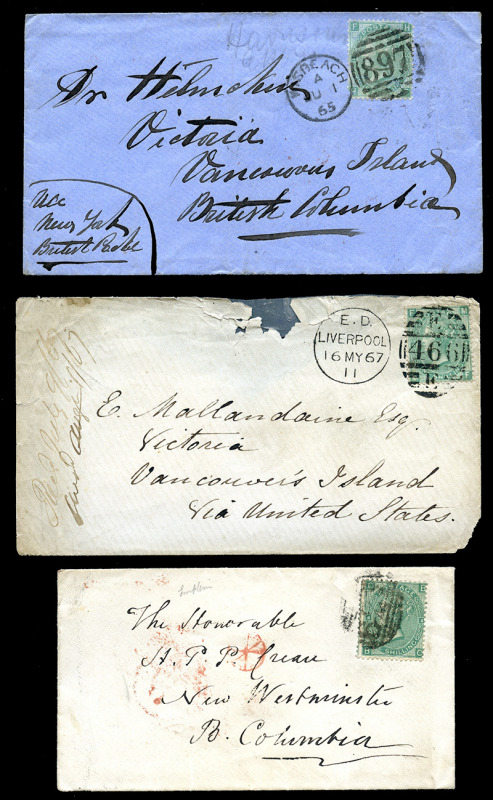 F H
897
WISBEACH
A
JU 1
65
Dr Helmcken
Victoria
Vancouvers Island
British Columbia
via
New York
British Packet
E. D.
LIVERPOOL
16 MY 67
11
466
E. Mallandaine Esq.
Victoria
Vancouver's Island
Via United States.
The Honorable
H. P. P. Crease
New Westminster
B. Columbia
SHILLING